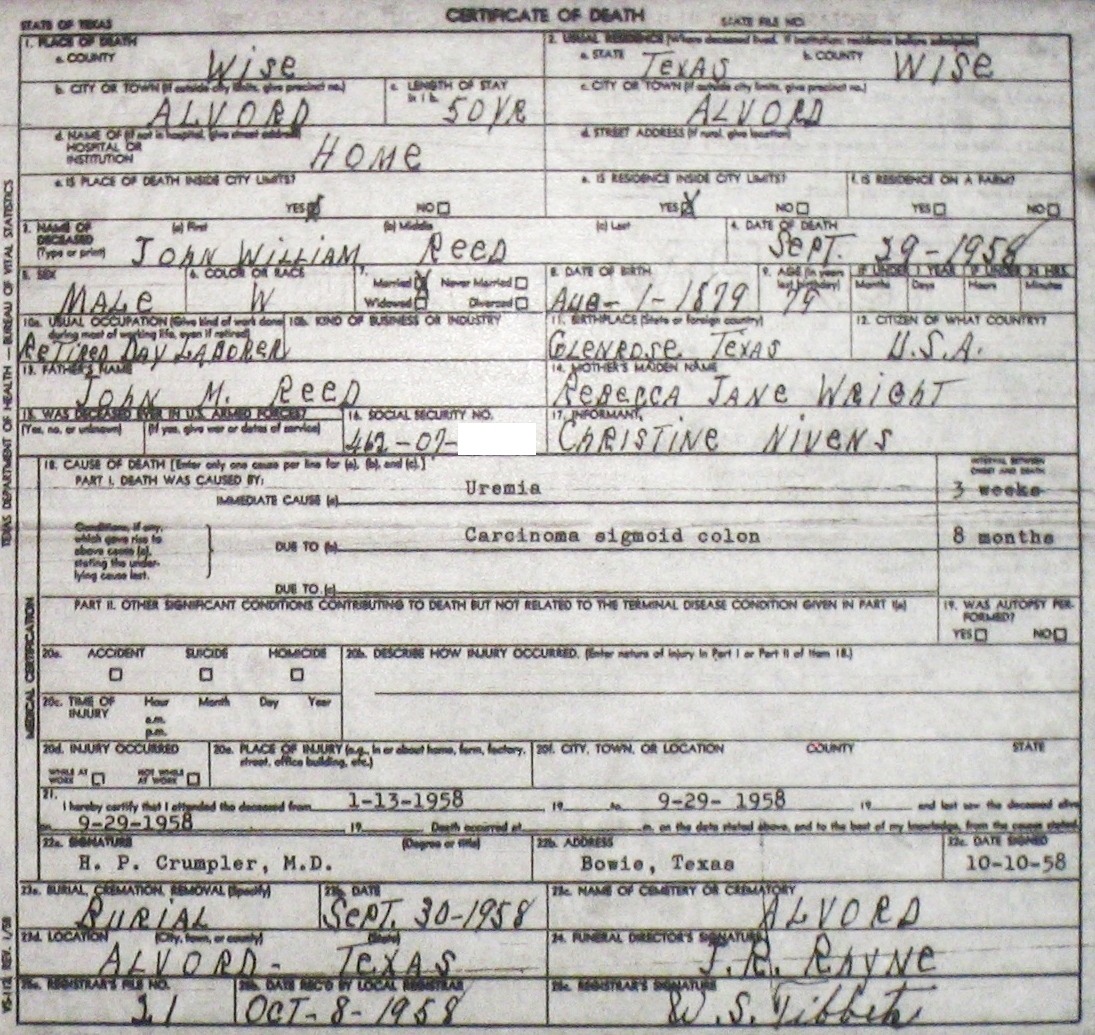 CERTIFICATE OF DEATH
STATE OF TEXAS STATE FILE NO.
1. PLACE OF DEATH
a. COUNTY Wise
2. USUAL RESIDENCE (Where deceased lived. If institution: residence before admission)
a. STATE Texas b. COUNTY Wise
b. CITY OR TOWN (If outside city limits, give precinct no.) ALVORD
c. LENGTH OF STAY in 1 b. 50 YR
c. CITY OR TOWN (If outside city limits, give precinct no.) ALVORD
d. NAME OF (If not in hospital, give street address)
HOSPITAL OR
INSTITUTION HOME
d. STREET ADDRESS (If rural, give location)
e. IS PLACE OF DEATH INSIDE CITY LIMITS?
YES NO
e. IS RESIDENCE INSIDE CITY LIMITS?
YES NO
f. IS RESIDENCE ON A FARM?
YES NO
3. NAME OF DECEASED (Type or print) (a) First (b) Middle (c) Last
JOHN WILLIAM REED
4. DATE OF DEATH
SEPT. 29-1958
5. SEX
MALE
6. COLOR OR RACE
W
7.
Married Never Married
Widowed Divorced
8. DATE OF BIRTH
AUG-1-1879
9. AGE (In years last birthday)
79
IF UNDER 1 YEAR IF UNDER 24 HRS.
Months Days Hours Minutes
10a. USUAL OCCUPATION (Give kind of work done during most of working life, even if retired)
RETIRED DAY LABORER
10b. KIND OF BUSINESS OR INDUSTRY
11. BIRTHPLACE (State or foreign country)
GLENROSE TEXAS
12. CITIZEN OF WHAT COUNTRY?
U.S.A.
13. FATHER'S NAME
JOHN M. REED
14. MOTHER'S MAIDEN NAME
REBECCA JANE WRIGHT
15. WAS DECEASED EVER IN U.S. ARMED FORCES?
(Yes, no, or unknown) (If yes, give war or dates of service)
16. SOCIAL SECURITY NO.
462-07-
17. INFORMANT
CHRISTINE NIVENS
18. CAUSE OF DEATH [Enter only one cause per line for (a), (b), and (c).]
PART I. DEATH WAS CAUSED BY:
IMMEDIATE CAUSE (a) Uremia
INTERVAL BETWEEN ONSET AND DEATH
3 weeks
Conditions, if any,
which gave rise to
above cause (a),
stating the under-
lying cause last.
DUE TO (b) Carcinoma sigmoid colon
8 months
DUE TO (c)
PART II. OTHER SIGNIFICANT CONDITIONS CONTRIBUTING TO DEATH BUT NOT RELATED TO THE TERMINAL DISEASE CONDITION GIVEN IN PART I(a)
19. WAS AUTOPSY PERFORMED?
YES NO
20a. ACCIDENT SUICIDE HOMICIDE
20b. DESCRIBE HOW INJURY OCCURRED. (Enter nature of injury in Part I or Part II of item 18.)
20c. TIME OF INJURY Hour Month Day Year
a.m.
p.m.
20d. INJURY OCCURRED
WHILE AT WORK NOT WHILE AT WORK
20e. PLACE OF INJURY (e.g., in or about home, farm, factory, street, office building, etc.)
20f. CITY, TOWN, OR LOCATION COUNTY STATE
21.
I hereby certify that I attended the deceased from 1-13-1958, 19 to 9-29- 1958 19 and last saw the deceased alive
on 9-29-1958, 19 Death occurred at m. on the date stated above, and to the best of my knowledge, from the causes stated.
22a. SIGNATURE (Degree or title)
H. P. Crumpler, M.D.
22b. ADDRESS
Bowie, Texas
22c. DATE SIGNED
10-10-58
23a. BURIAL, CREMATION, REMOVAL (Specify)
BURIAL
23b. DATE
SEPT. 30-1958
23c. NAME OF CEMETERY OR CREMATORY
ALVORD
23d. LOCATION (City, town, or county) (State)
ALVORD- TEXAS
24. FUNERAL DIRECTOR'S SIGNATURE
J.R. RHYNE
25a. REGISTRAR'S FILE NO.
21
25b. DATE REC'D BY LOCAL REGISTRAR
OCT-8-1958
25c. REGISTRAR'S SIGNATURE
W. S. Tibbets
TEXAS DEPARTMENT OF HEALTH — BUREAU OF VITAL STATISTICS
MEDICAL CERTIFICATION
VS-112 REV. 1/58